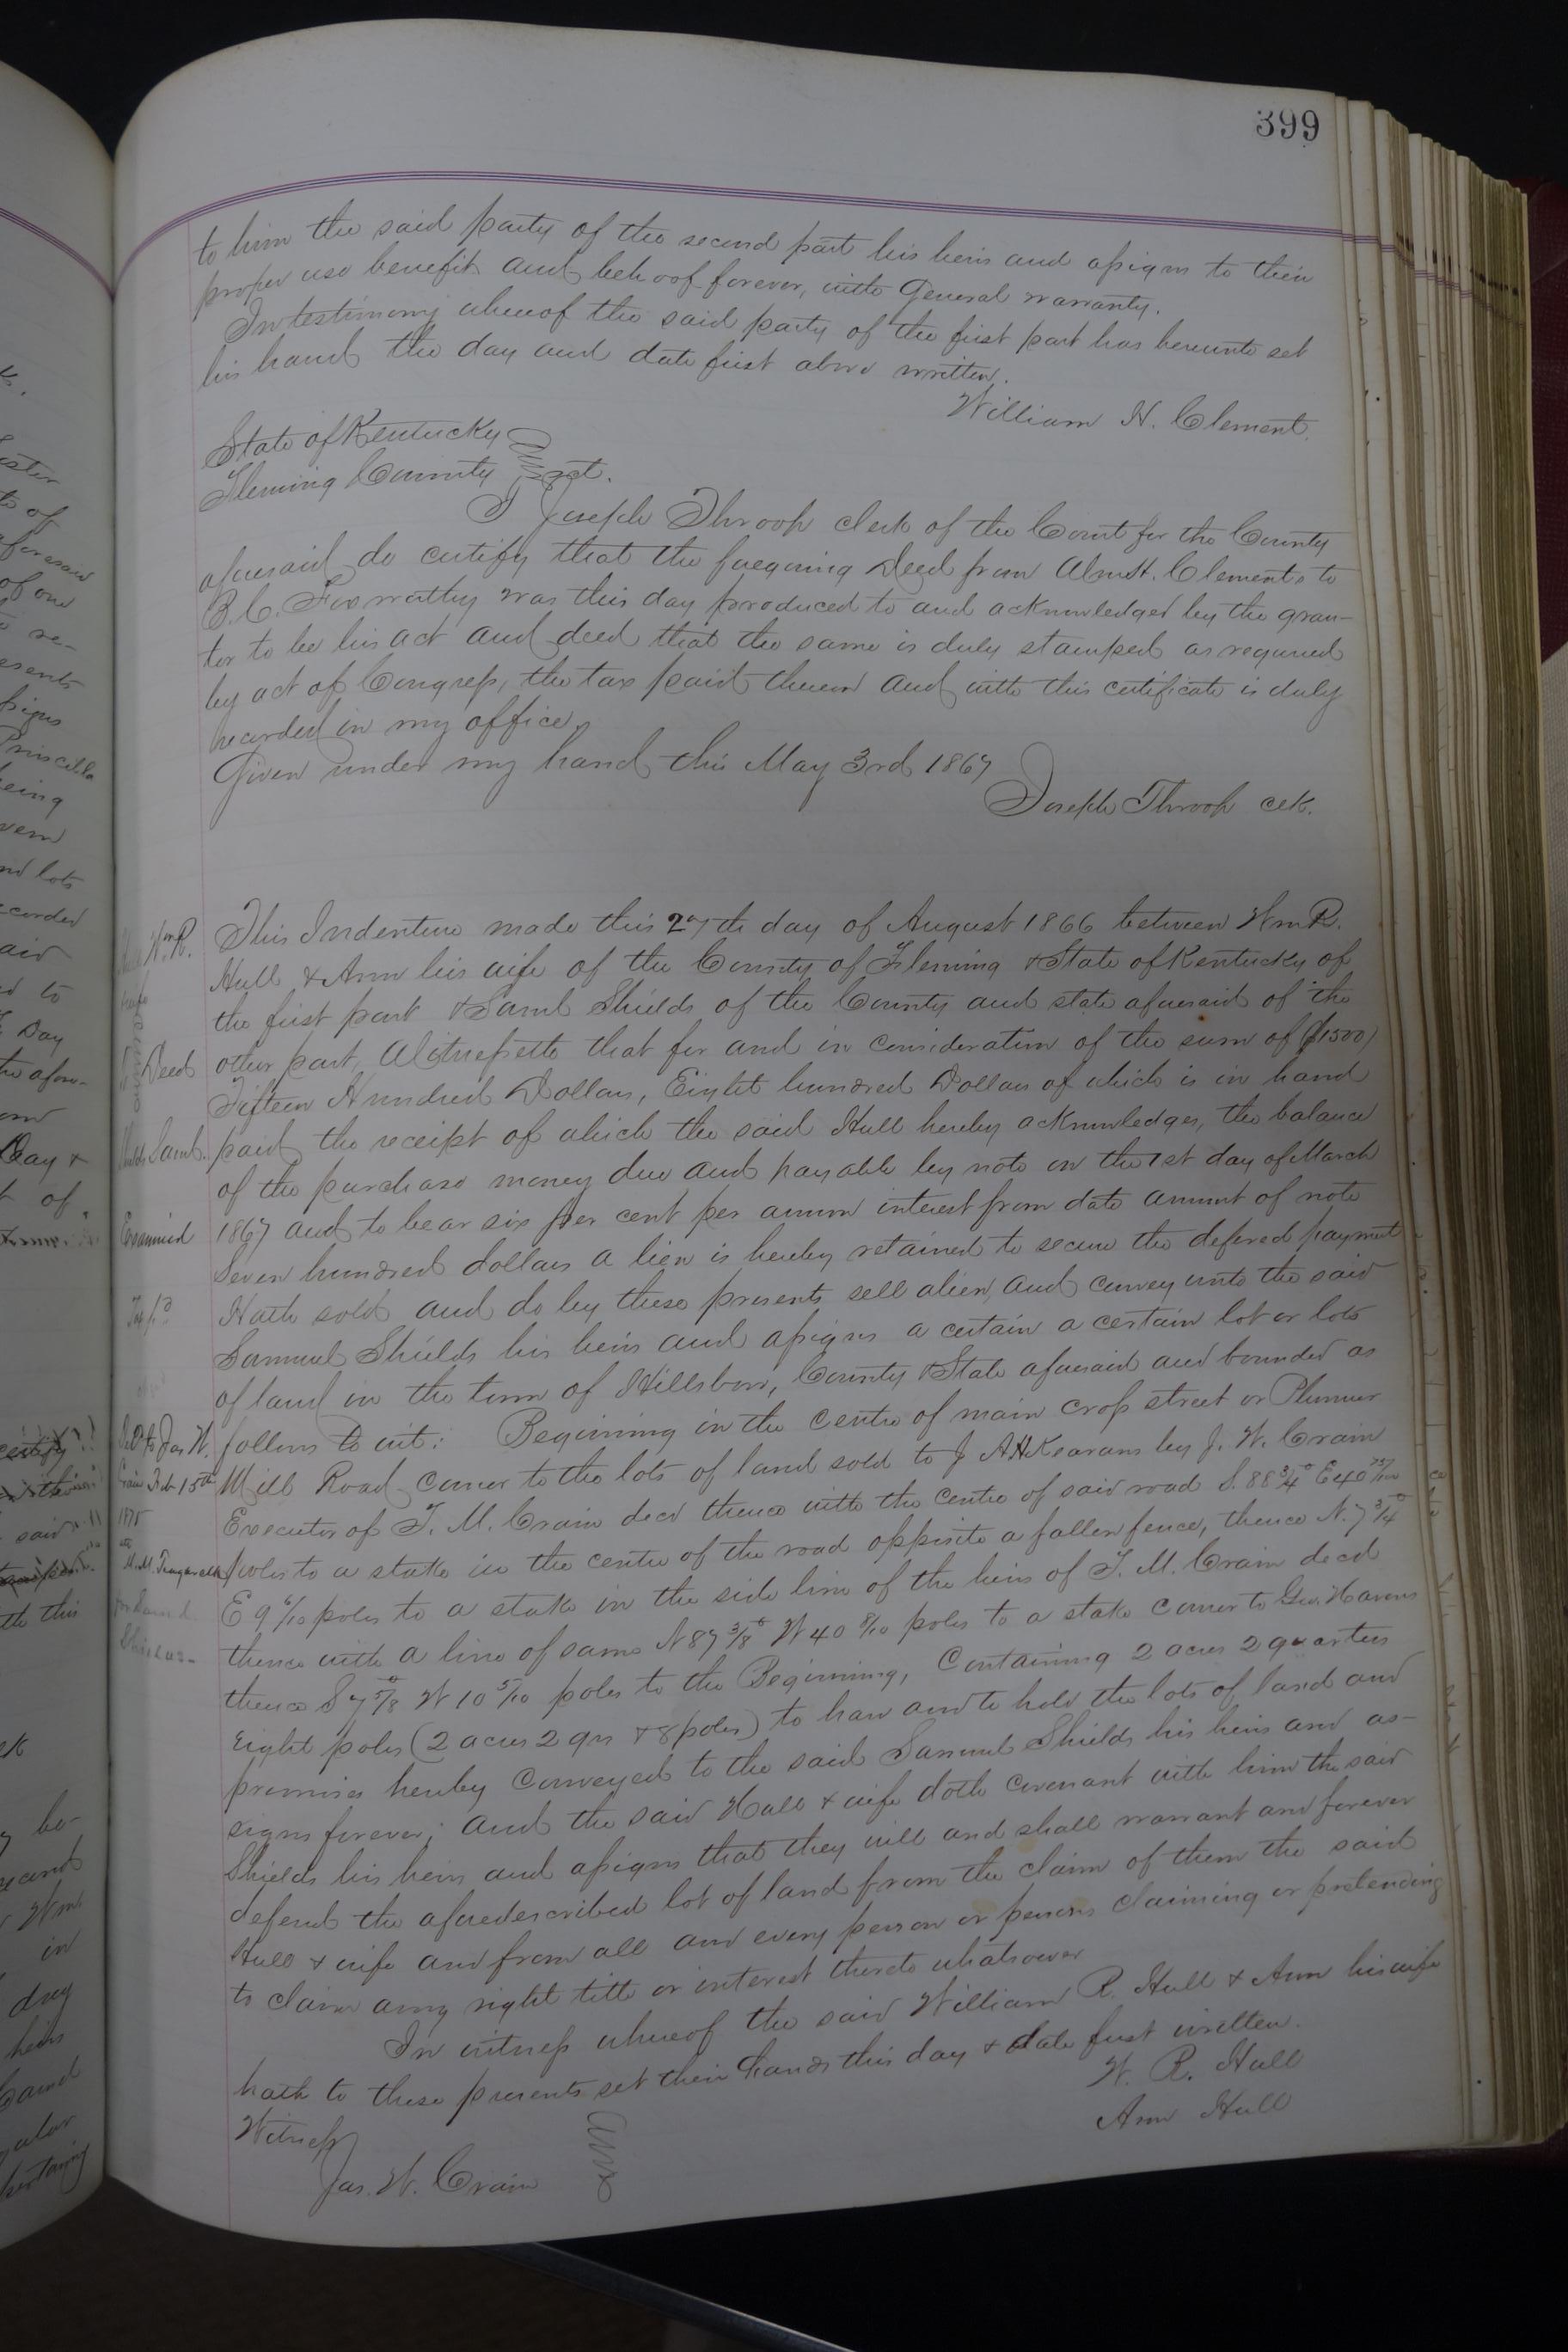 399
to him the said party of the second part his heirs and assigns to their
proper use benefit and behoof forever, with General warranty.
In testimony whereof the said party of the first part has hereunto set
his hand the day and date first above written.
William H. Clement.
State of Kentucky
Fleming County Sct.
I Joseph Throop clerk of the Court for the County
aforesaid do certify that the foregoing Deed from Wm H. Clements to
B. C. Foxworthy was this day produced to and acknowledged by the gran-
tor to be his act and deed that the same is duly stamped as required
by act of Congress, the tax paid thereon and with this certificate is duly
recorded in my office.
Given under my hand this May 3rd 1867
Joseph Throop clk.
This Indenture made this 27th day of August 1866 between Wm R.
Hull & Ann his wife of the County of Fleming & State of Kentucky of
the first part & Saml Shields of the County and state aforesaid of the
other part, Witnesseth that for and in consideration of the sum of ($1500)
Fifteen Hundred Dollars, Eight hundred Dollars of which is in hand
paid the receipt of which the said Hull hereby acknowledges, the balance
of the purchase money due and payable by note on the 1st day of March
1867 and to bear six per cent per annum interest from date amount of note
Seven hundred dollars a lien is hereby retained to secure the defered payment
Hath sold and do by these presents sell alien, and convey unto the said
Samuel Shields his heirs and assigns a certain a certain lot or lots
of land in the town of Hillsboro, County & State aforesaid and bounded as
follows to wit: Beginning in the centre of main cross street or Plummer
Mill Road corner to the lots of land sold to J A H Kearans by J. W. Crain
Executor of T. M. Crain decd thence with the centre of said road S. 88 3/4° E 40 75/100
poles to a stake in the centre of the road opposite a fallen fence, thence N. 7 3/4°
E 9 6/10 poles to a stake in the side line of the heirs of T. M. Crain decd
thence with a line of same N 87 3/8° W 40 8/10 poles to a stake corner to Geo. Havens
thence S 7 5/8° W 10 5/10 poles to the Beginning, Containing 2 acres 2 quarters
Eight poles (2 acres 2 qrs & 8 poles) to have and to hold the lots of land and
premises hereby conveyed to the said Samuel Shields his heirs and as-
signs forever; and the said Hull & wife doth covenant with him the said
Shields his heirs and assigns that they will and shall warrant and forever
defend the aforedescribed lot of land from the claim of them the said
Hull & wife and from all and every person or persons claiming or pretending
to claim any right title or interest thereto whatsoever
In witness whereof the said William R. Hull & Ann his wife
hath to these presents set their hands this day & date first written.
W. R. Hull
Ann Hull
Witness
Jas. W. Crain
Wm R.
Deed
Saml.
Examined
Deld to Jas W.
Crain Feb 15th
1875